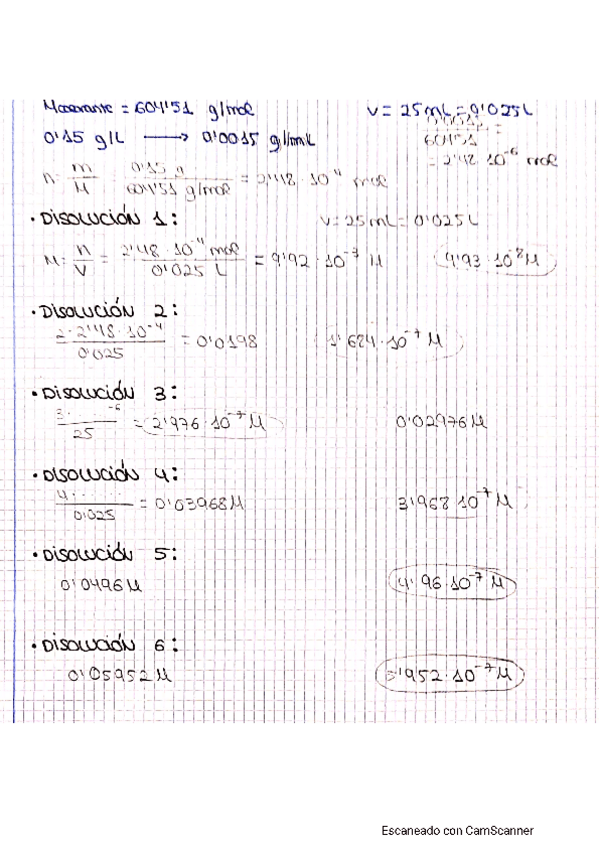 Mcolorante = 604'51 g/mol V = 25mL = 0'025L
0'15 g/L → 0'0015 g/mL
604'51 =
= 2'48 · 10⁻⁶ mol
n = m/M = 0'15 g / 604'51 g/mol = 2'48 · 10⁻⁴ mol
· DISOLUCIÓN 1: V = 25mL = 0'025L
M = n/V = 2'48 · 10⁻⁴ mol / 0'025 L = 9'92 · 10⁻³ M 4'93 · 10⁻⁸ M
· DISOLUCIÓN 2:
2 · 2'48 · 10⁻⁴ / 0'025 = 0'0198 1'684 · 10⁻⁷ M
· DISOLUCIÓN 3:
3 · ...... ⁻⁶ / 25 = 2'976 · 10⁻⁷ M 0'02976 M
· DISOLUCIÓN 4:
4 · ...... / 0'025 = 0'03968 M 3'968 · 10⁻⁷ M
· DISOLUCIÓN 5:
0'0496 M 4'96 · 10⁻⁷ M
· DISOLUCIÓN 6:
0'05952 M 5'952 · 10⁻⁷ M
Escaneado con CamScanner